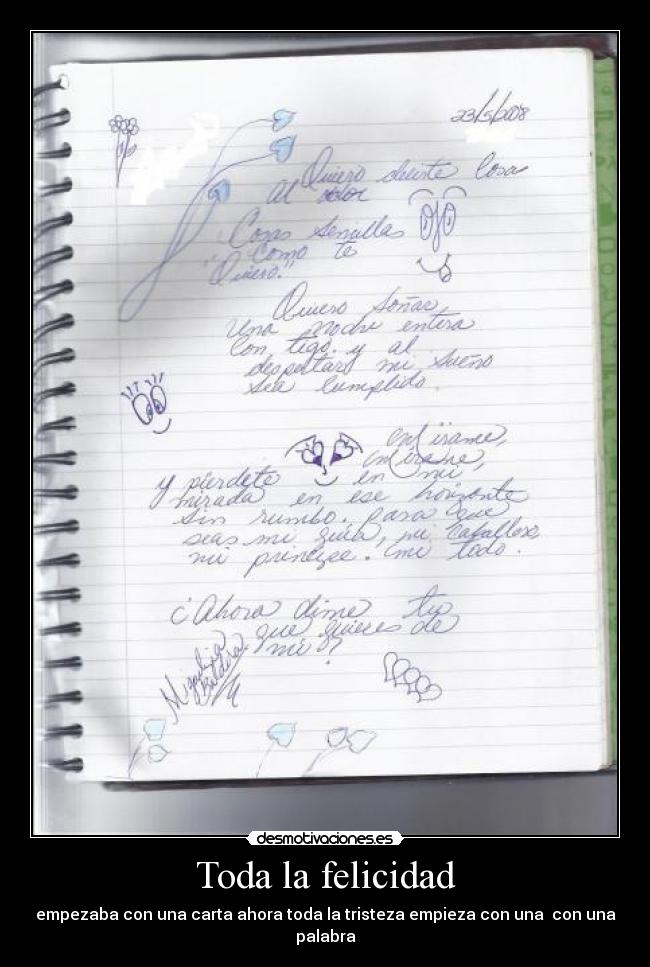 23/5/2008
Quiero decirte Cosas
al
Cosas Sencillas
Como te
Quiero."
Quiero Soñar,
Una noche entera
Con tigo. y al
despertar mi Sueño
Sea Cumplido.
mirame,
mirame,
y pierdete en mi
mirada en ese horizonte
Sin rumbo. Para que
seas mi guia, mi Caballero
mi principe. mi todo.
¿Ahora dime tu
que quieres de
mi?
desmotivaciones.es
Toda la felicidad
empezaba con una carta ahora toda la tristeza empieza con una con una
palabra